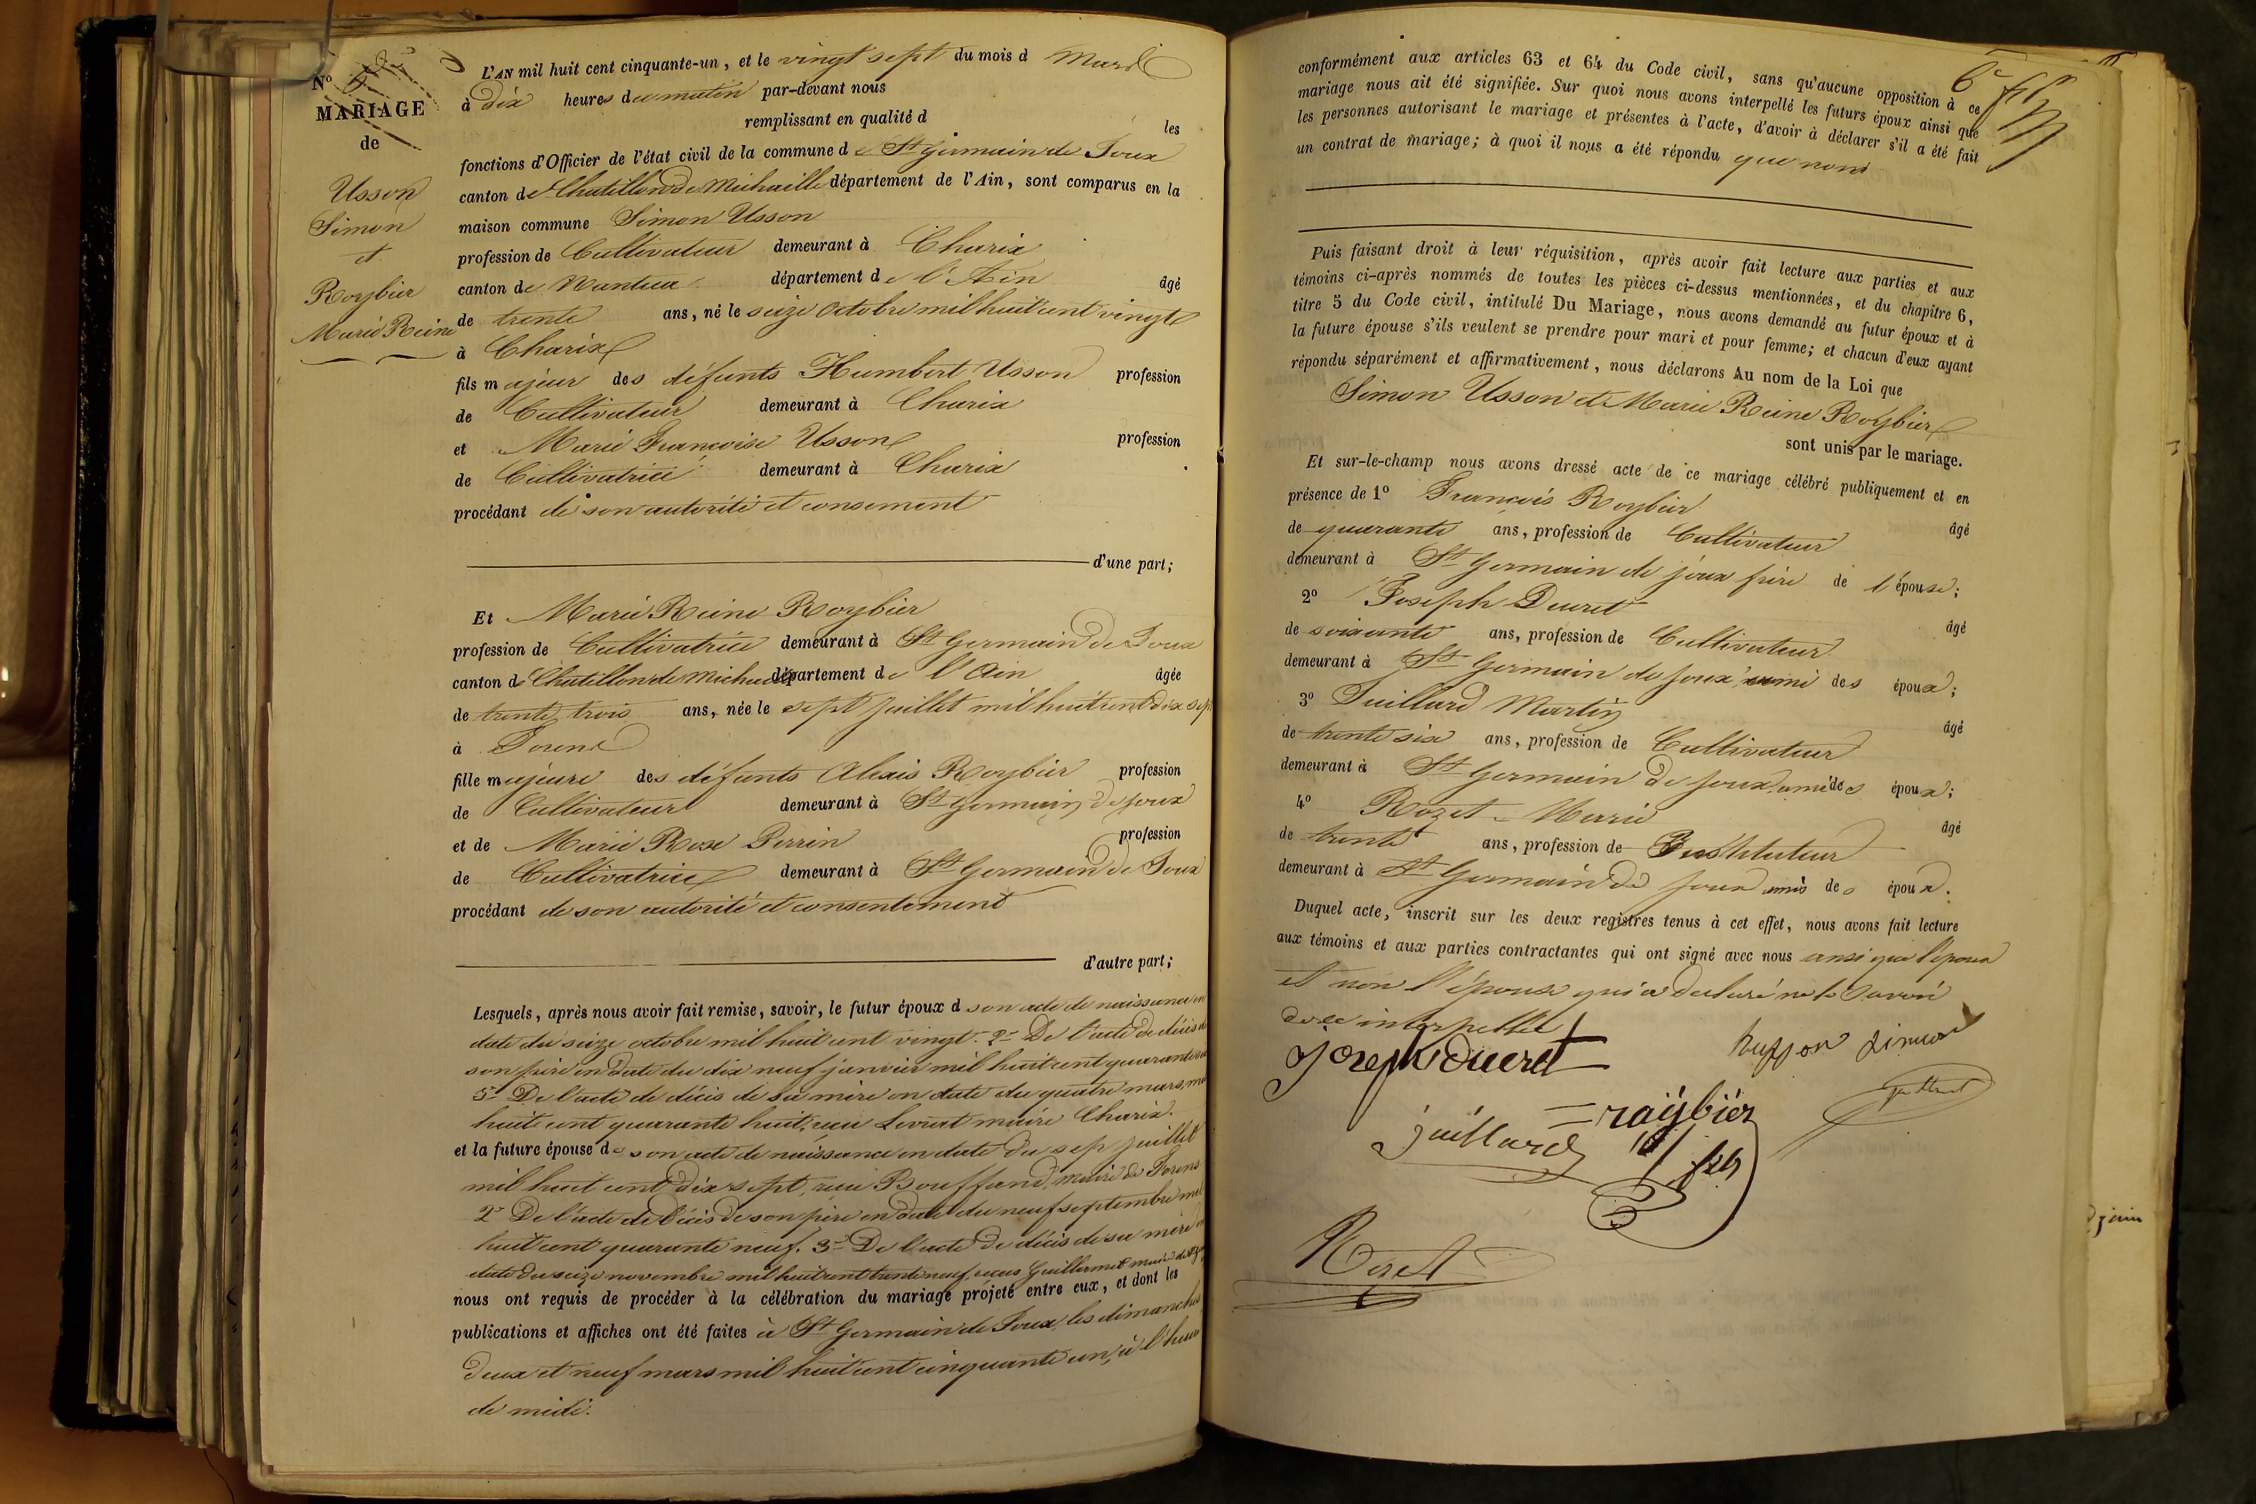 N°
MARIAGE
de
Usson
Simon
et
Roybier
Marie Reine
L'AN mil huit cent cinquante-un, et le vingt sept du mois d Mars
à dix heures du matin par-devant nous
remplissant en qualité d les
fonctions d'Officier de l'état civil de la commune de St Germain de Joux
canton de Chatillon de Michaille département de l'Ain, sont comparus en la
maison commune Simon Usson
profession de Cultivateur demeurant à Charix
canton de Nantua département de l'Ain âgé
de trente ans, né le seize octobre mil huit cent vingt
à Charix
fils majeur des défunts Humbert Usson profession
de Cultivateur demeurant à Charix
et Marie Françoise Usson profession
de Cultivatrice demeurant à Charix
procédant de son autorité et consement
d'une part;
Et Marie Reine Roybier
profession de Cultivatrice demeurant à St Germain de Joux
canton de Chatillon de Michaille département de l'Ain âgée
de trente trois ans, née le sept juillet mil huit cent dix sept
à Forens
fille majeure des défunts Alexis Roybier profession
de Cultivateur demeurant à St Germain de joux
et de Marie Rose Perrin profession
de Cultivatrice demeurant à St Germain de Joux
procédant de son autorité et consentement
d'autre part;
Lesquels, après nous avoir fait remise, savoir, le futur époux d son acte de naissance en
date du seize octobre mil huit cent vingt. 2° De l'acte de décès de
son père en date du dix neuf janvier mil huit cent quarante
3° De l'acte de décès de sa mère en date du quatre mars mil
huit cent quarante huit, reçu Levrat maire Charix.
et la future épouse de son acte de naissance en date du sep juillet
mil huit cent dix sept, reçu Bouffand, maire de Forens
2° De l'acte de décès de son père en date du neuf septembre mil
huit cent quarante neuf. 3° De l'acte de décès de sa mère en
date du seize novembre mil huit cent trente neuf, reçus Guillermet maire
nous ont requis de procéder à la célébration du mariage projeté entre eux, et dont les
publications et affiches ont été faites à St Germain de Joux, les dimanches
deux et neuf mars mil huit cent cinquante un, à l'heure
de midi.
conformément aux articles 63 et 64 du Code civil, sans qu'aucune opposition à ce
mariage nous ait été signifiée. Sur quoi nous avons interpellé les futurs époux ainsi que
les personnes autorisant le mariage et présentes à l'acte, d'avoir à déclarer s'il a été fait
un contrat de mariage; à quoi il nous a été répondu que non
Puis faisant droit à leur réquisition, après avoir fait lecture aux parties et aux
témoins ci-après nommés de toutes les pièces ci-dessus mentionnées, et du chapitre 6,
titre 5 du Code civil, intitulé Du Mariage, nous avons demandé au futur époux et à
la future épouse s'ils veulent se prendre pour mari et pour femme; et chacun d'eux ayant
répondu séparément et affirmativement, nous déclarons Au nom de la Loi que
Simon Usson et Marie Reine Roybier
sont unis par le mariage.
Et sur-le-champ nous avons dressé acte de ce mariage célébré publiquement et en
présence de 1° François Roybier âgé
de quarante ans, profession de Cultivateur
demeurant à St Germain de joux frère de l'épouse;
2° Joseph Ducret âgé
de soixante ans, profession de Cultivateur
demeurant à St Germain de joux, ami des époux;
3° Juillard Martin âgé
de trente six ans, profession de Cultivateur
demeurant à St Germain de joux, ami des époux;
4° Rozet Marie âgé
de trente ans, profession de Instituteur
demeurant à St Germain de joux amis des époux.
Duquel acte, inscrit sur les deux registres tenus à cet effet, nous avons fait lecture
aux témoins et aux parties contractantes qui ont signé avec nous ansi que l'époux
et non l'épouse qui a declaré ne le savoir
de ce interpellée
Joseph ducret
husson simon
raÿbiér
juillard
Rozet